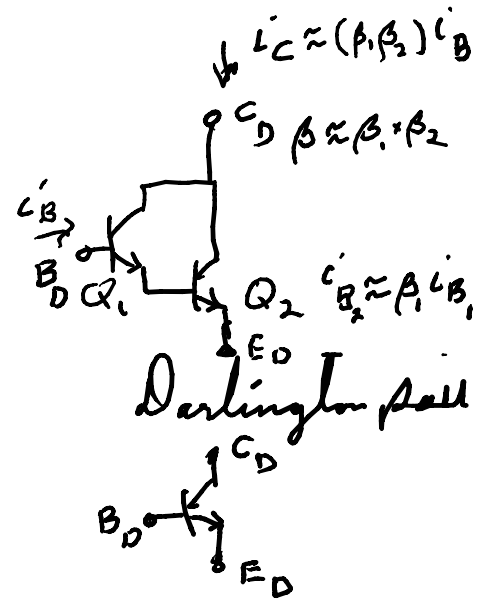 i_C ≈ (β₁β₂) i_B
C_D β ≈ β₁ × β₂
i_B
B_D Q₁
Q₂ i_B₂ ≈ β₁ i_B₁
E_D
Darlington pair
C_D
B_D
E_D